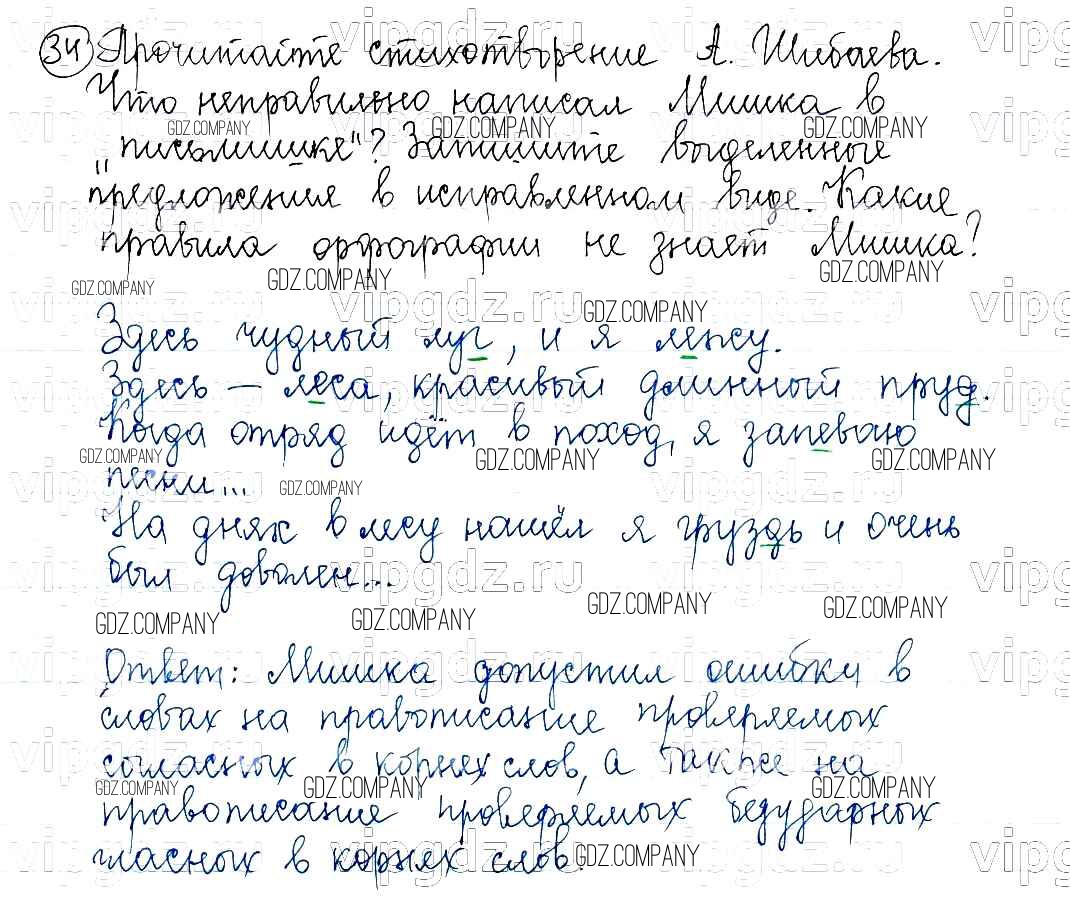 34 Прочитайте стихотворение А. Шибаева.
Что неправильно написал Мишка в
„письмишке"? Запишите выделенные
предложения в исправленном виде. Какие
правила орфографии не знает Мишка?
Здесь чудный луг, и я лежу.
Здесь – леса, красивый длинный пруд.
Когда отряд идёт в поход, я запеваю
песни...
На днях в лесу нашёл я груздь и очень
был доволен...
Ответ: Мишка допустил ошибки в
словах на правописание проверяемых
согласных в корнях слов, а также на
правописание проверяемых безударных
гласных в корнях слов.